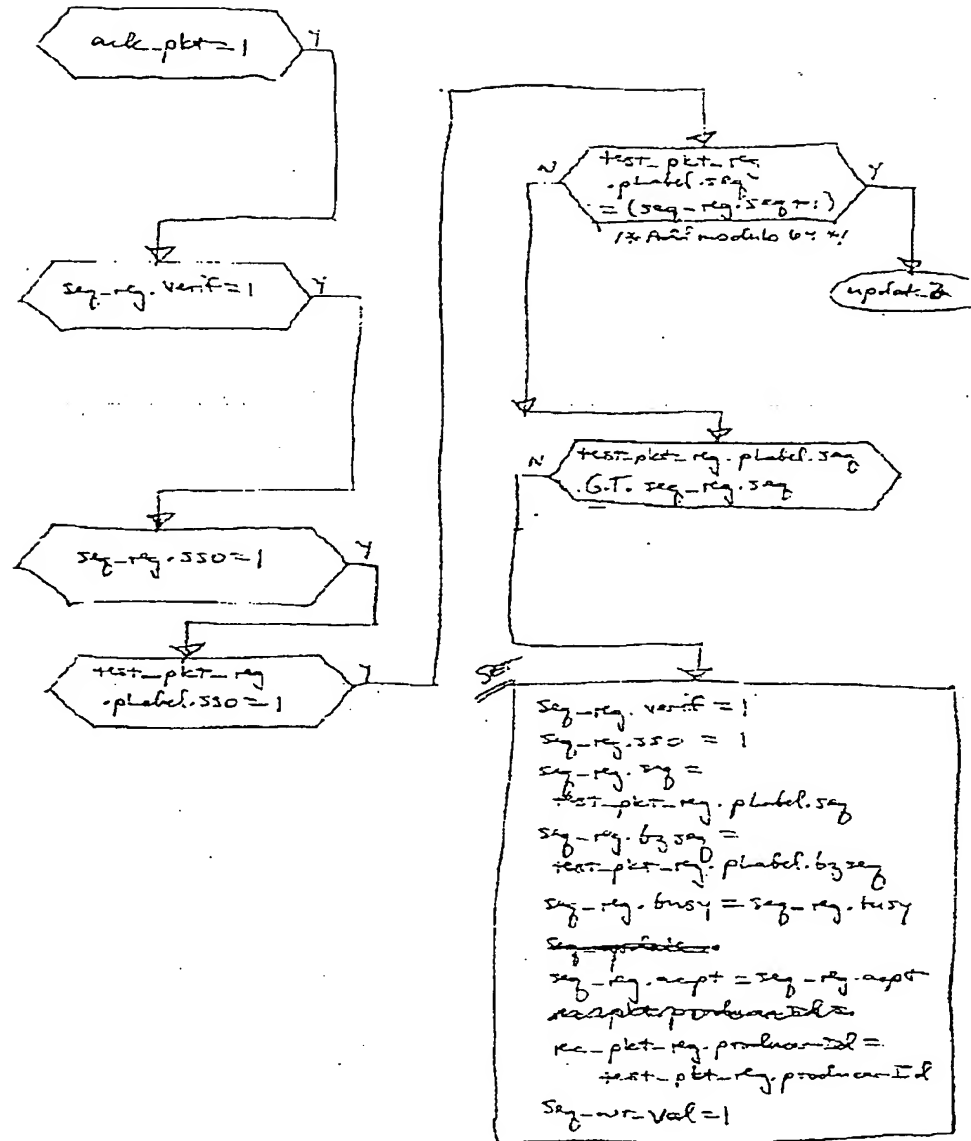 ack_pkt=1
Y
seq_reg.verif=1
Y
seq_reg.sso=1
Y
test_pkt_reg
.plabel.sso=1
Y
test_pkt_reg
.plabel.seq
=(seq_reg.seq+1)
N
Y
modulo 64 */
N
test_pkt_reg.plabel.seq
.G.T. seq_reg.seq
seq_reg.verif=1
seq_reg.sso = 1
seq_reg.seq =
test_pkt_reg.plabel.seq
seq_reg.bzseq =
test_pkt_reg.plabel.bzseq
seq_reg.busy=seq_reg.busy
seq_reg.acpt=seq_reg.acpt
rec_pkt_reg.producerId=
test_pkt_reg.producerId
seq_wr_val=1